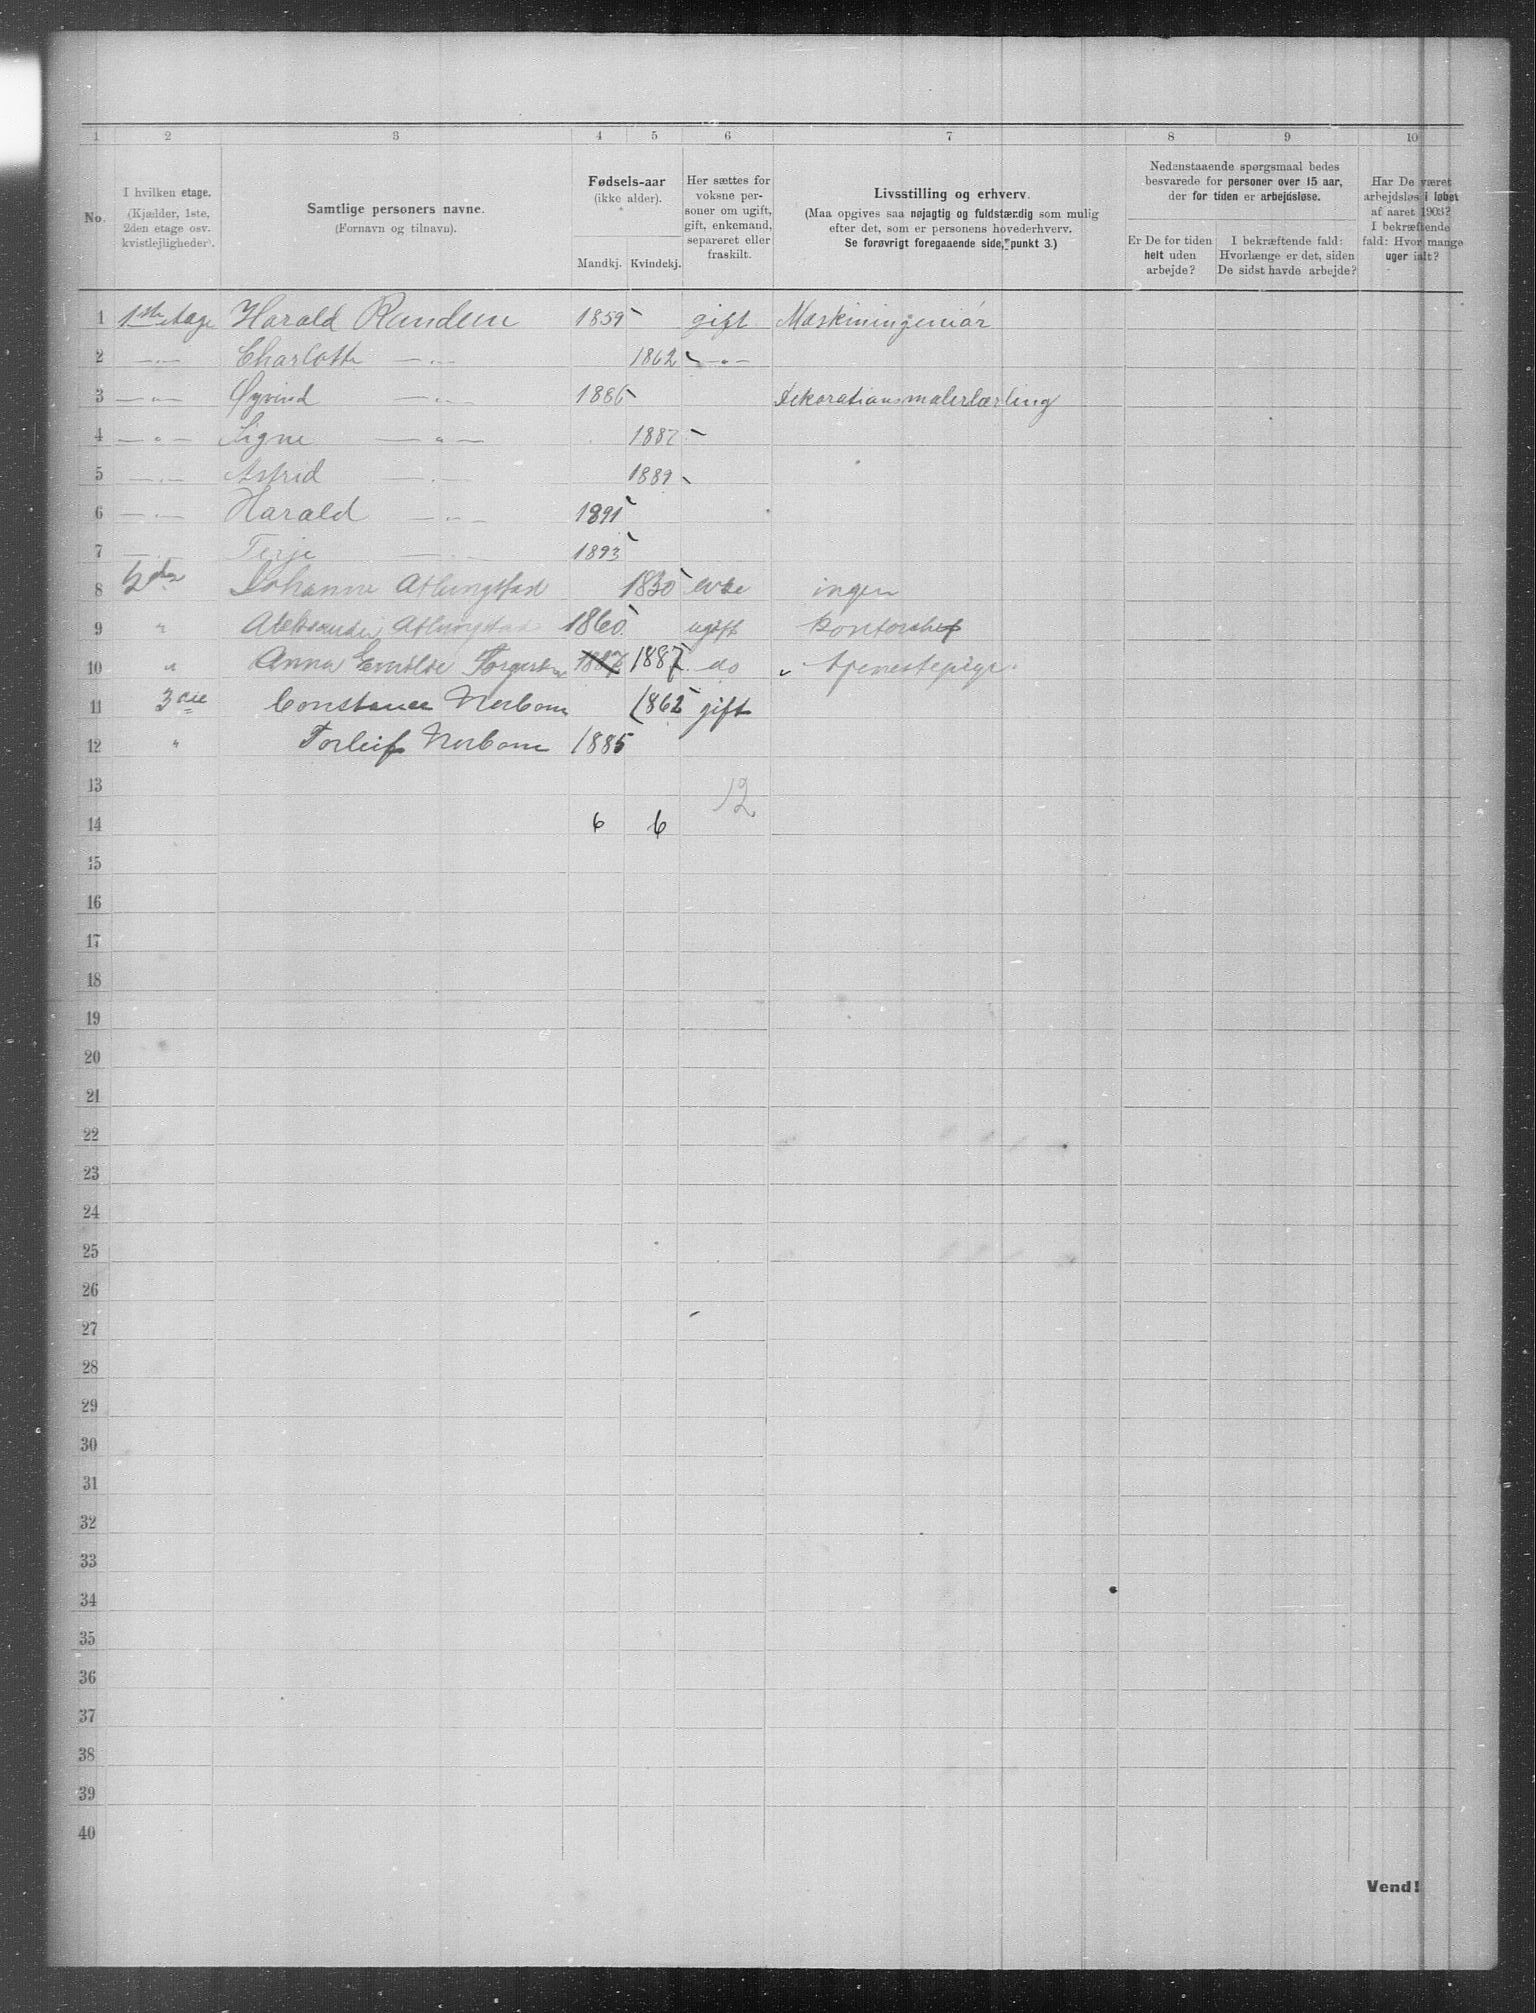 1 2 3 4 5 6 7 8 9 10
No.
I hvilken etage.
(Kjælder, 1ste,
2den etage osv.
kvistlejligheder).
Samtlige personers navne.
(Fornavn og tilnavn).
Fødsels-aar
(ikke alder).
Mandkj. Kvindekj.
Her sættes for
voksne per-
soner om ugift,
gift, enkemand,
separeret eller
fraskilt.
Livsstilling og erhverv.
(Maa opgives saa nøjagtig og fuldstærdig som mulig
efter det, som er personens hovederhverv.
Se forøvrigt foregaaende side, punkt 3.)
Nedenstaaende spørgsmaal bedes
besvarede for personer over 15 aar,
der for tiden er arbejdsløse.
Er De for tiden
helt uden
arbejde?
I bekræftende fald:
Hvorlænge er det, siden
De sidst havde arbejde?
Har De været
arbejdsløs i løbet
af aaret 1903?
I bekræftende
fald: Hvor mange
uger ialt?
1 1ste etage Harald Randem 1859 gift Maskiningeniør
2 — " — Charlotte — " — 1862 — " —
3 — " — Øyvind — " — 1886 Dekorationsmalerlærling
4 — " — Signe — " — 1887
5 — " — Astrid — " — 1889
6 — " — Harald — " — 1891
7 — " — Terje — " — 1893
8 Johanne Atlungstad 1830 enke ingen
9 " Aleksander Atlungstad 1860 ugift kontorchef
10 " Anna Emilie 1887 1887 do " tjenestepige
11 3die Constance Norbom 1862 gift
12 " Torleif Norbom 1885
13 12
14 6 6
15
16
17
18
19
20
21
22
23
24
25
26
27
28
29
30
31
32
33
34
35
36
37
38
39
40
Vend!